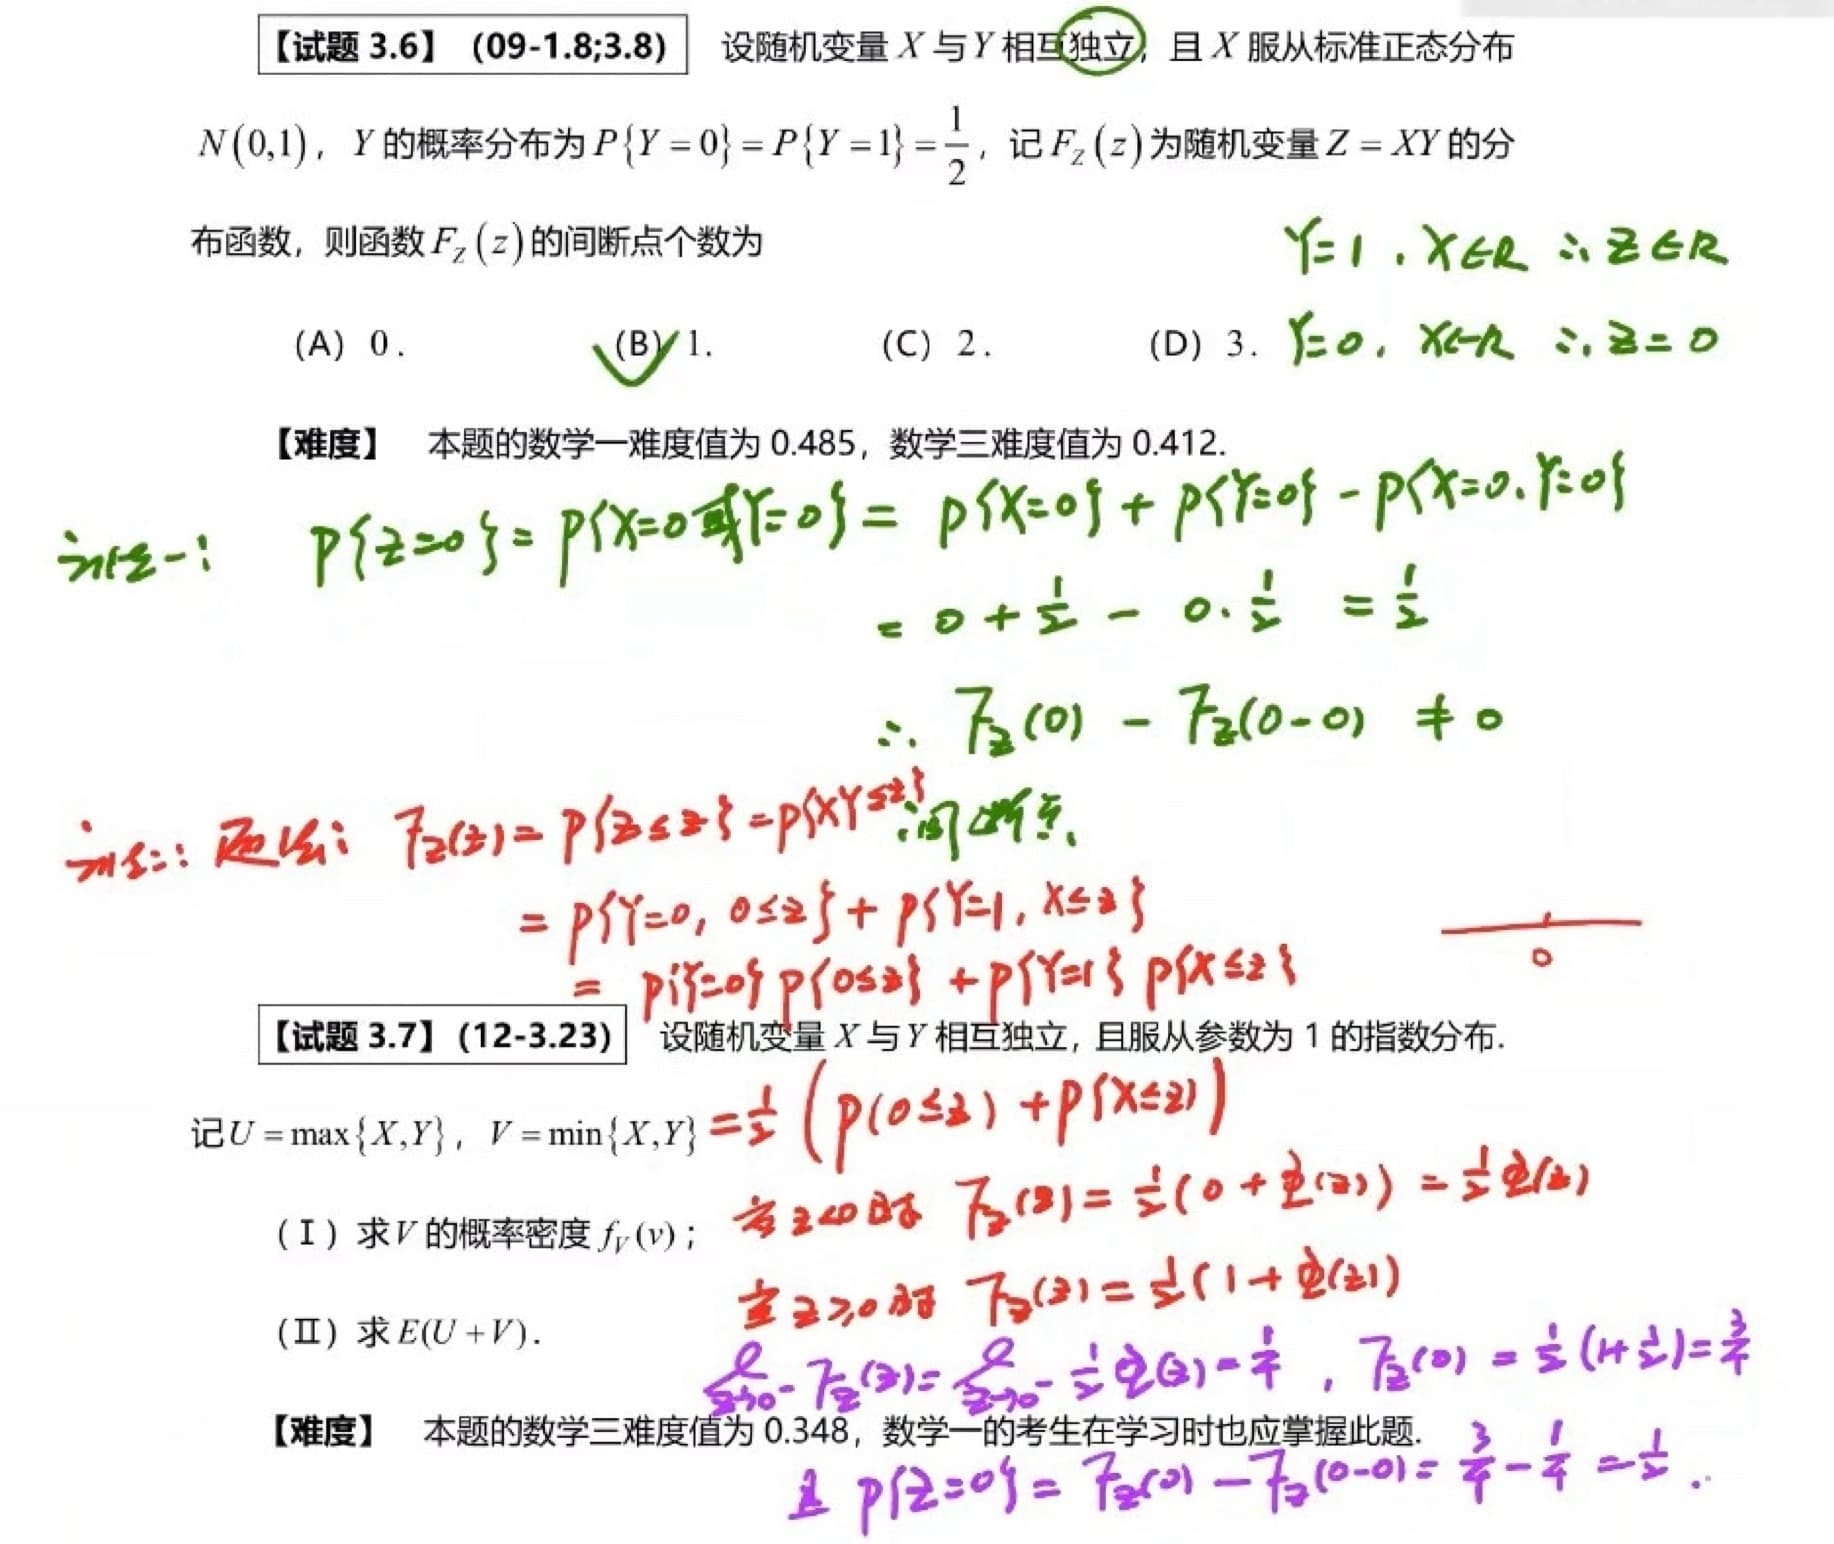 【试题 3.6】 (09-1.8;3.8) 设随机变量 X 与 Y 相互独立，且 X 服从标准正态分布
N(0,1)，Y 的概率分布为 P{Y = 0} = P{Y = 1} = 1/2，记 F_Z(z) 为随机变量 Z = XY 的分
布函数，则函数 F_Z(z) 的间断点个数为
Y=1, X∈R ∴ Z∈R
(A) 0. (B) 1. (C) 2. (D) 3.
Y=0, X∈R ∴ Z=0
【难度】 本题的数学一难度值为 0.485，数学三难度值为 0.412.
法一: P{Z=0} = P{X=0或Y=0} = P{X=0} + P{Y=0} - P{X=0, Y=0}
= 0 + 1/2 - 0·1/2 = 1/2
∴ F_Z(0) - F_Z(0-0) ≠ 0
∴间断点.
法二: F_Z(z) = P{Z≤z} = P{XY≤z}
= P{Y=0, 0≤z} + P{Y=1, X≤z}
0
= P{Y=0} P{0≤z} + P{Y=1} P{X≤z}
【试题 3.7】 (12-3.23) 设随机变量 X 与 Y 相互独立，且服从参数为 1 的指数分布.
记 U = max{X,Y}，V = min{X,Y}
= 1/2 (P(0≤z) + P{X≤z))
(Ⅰ) 求 V 的概率密度 f_V(v)；
当 z<0 时 F_Z(z) = 1/2(0 + Φ(z)) = 1/2 Φ(z)
当 z≥0 时 F_Z(z) = 1/2(1 + Φ(z))
(Ⅱ) 求 E(U + V).
lim z→0- F_Z(z) = lim z→0- 1/2 Φ(z) = 1/4, F_Z(0) = 1/2 (1+1/2) = 3/4
【难度】 本题的数学三难度值为 0.348，数学一的考生在学习时也应掌握此题.
且 P{Z=0} = F_Z(0) - F_Z(0-0) = 3/4 - 1/4 = 1/2.